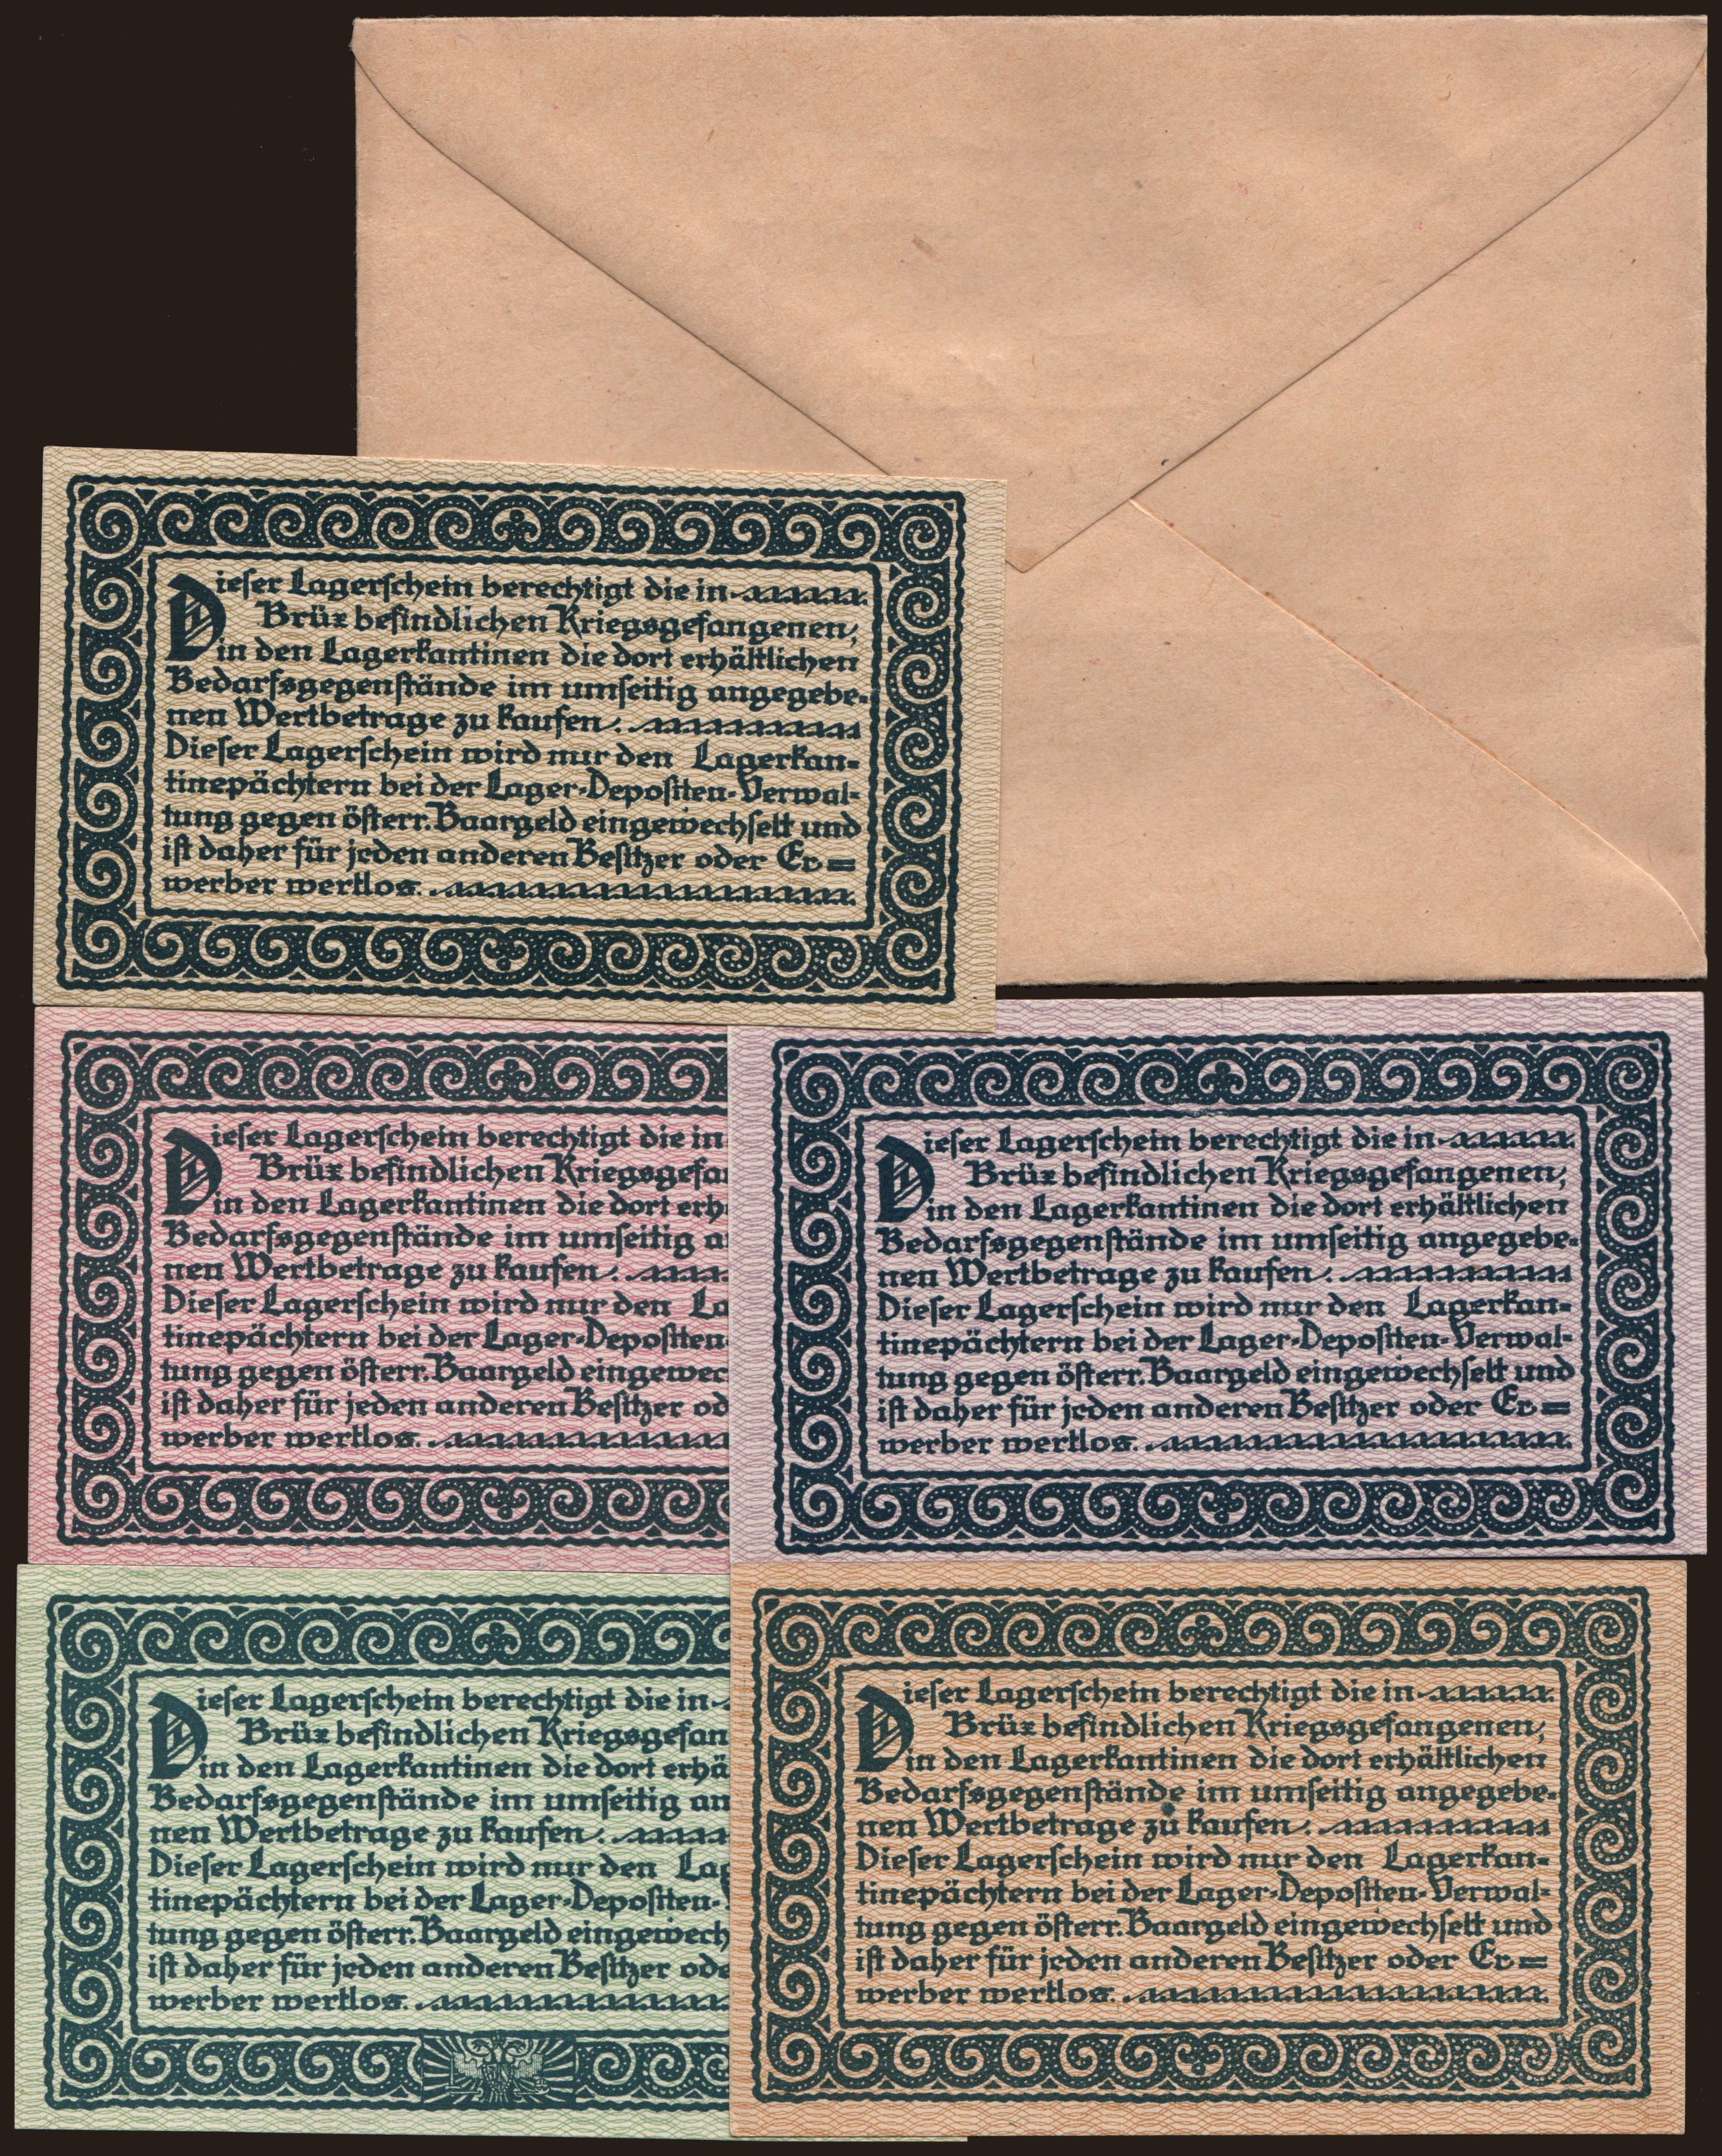 Dieser Lagerschein berechtigt die in
Brüx befindlichen Kriegsgefangenen,
in den Lagerkantinen die dort erhältlichen
Bedarfsgegenstände im umseitig angegebe-
nen Wertbetrage zu kaufen.
Dieser Lagerschein wird nur den Lagerkan-
tinepächtern bei der Lager-Depositen-Verwal-
tung gegen österr. Baargeld eingewechselt und
ist daher für jeden anderen Besitzer oder Er=
werber wertlos.
Dieser Lagerschein berechtigt die in
Brüx befindlichen Kriegsgefan
in den Lagerkantinen die dort erh
Bedarfsgegenstände im umseitig a
nen Wertbetrage zu kaufen.
Dieser Lagerschein wird nur den La
tinepächtern bei der Lager-Depositen
tung gegen österr. Baargeld eingewec
ist daher für jeden anderen Besitzer od
werber wertlos.
Dieser Lagerschein berechtigt die in
Brüx befindlichen Kriegsgefangenen,
in den Lagerkantinen die dort erhältlichen
Bedarfsgegenstände im umseitig angegebe-
nen Wertbetrage zu kaufen.
Dieser Lagerschein wird nur den Lagerkan-
tinepächtern bei der Lager-Depositen-Verwal-
tung gegen österr. Baargeld eingewechselt und
ist daher für jeden anderen Besitzer oder Er=
werber wertlos.
Dieser Lagerschein berechtigt die in
Brüx befindlichen Kriegsgefan
in den Lagerkantinen die dort erhä
Bedarfsgegenstände im umseitig an
nen Wertbetrage zu kaufen.
Dieser Lagerschein wird nur den Lag
tinepächtern bei der Lager-Depositen-
tung gegen österr. Baargeld eingewech
ist daher für jeden anderen Besitzer ode
werber wertlos.
Dieser Lagerschein berechtigt die in
Brüx befindlichen Kriegsgefangenen,
in den Lagerkantinen die dort erhältlichen
Bedarfsgegenstände im umseitig angegebe-
nen Wertbetrage zu kaufen.
Dieser Lagerschein wird nur den Lagerkan-
tinepächtern bei der Lager-Depositen-Verwal-
tung gegen österr. Baargeld eingewechselt und
ist daher für jeden anderen Besitzer oder Er=
werber wertlos.